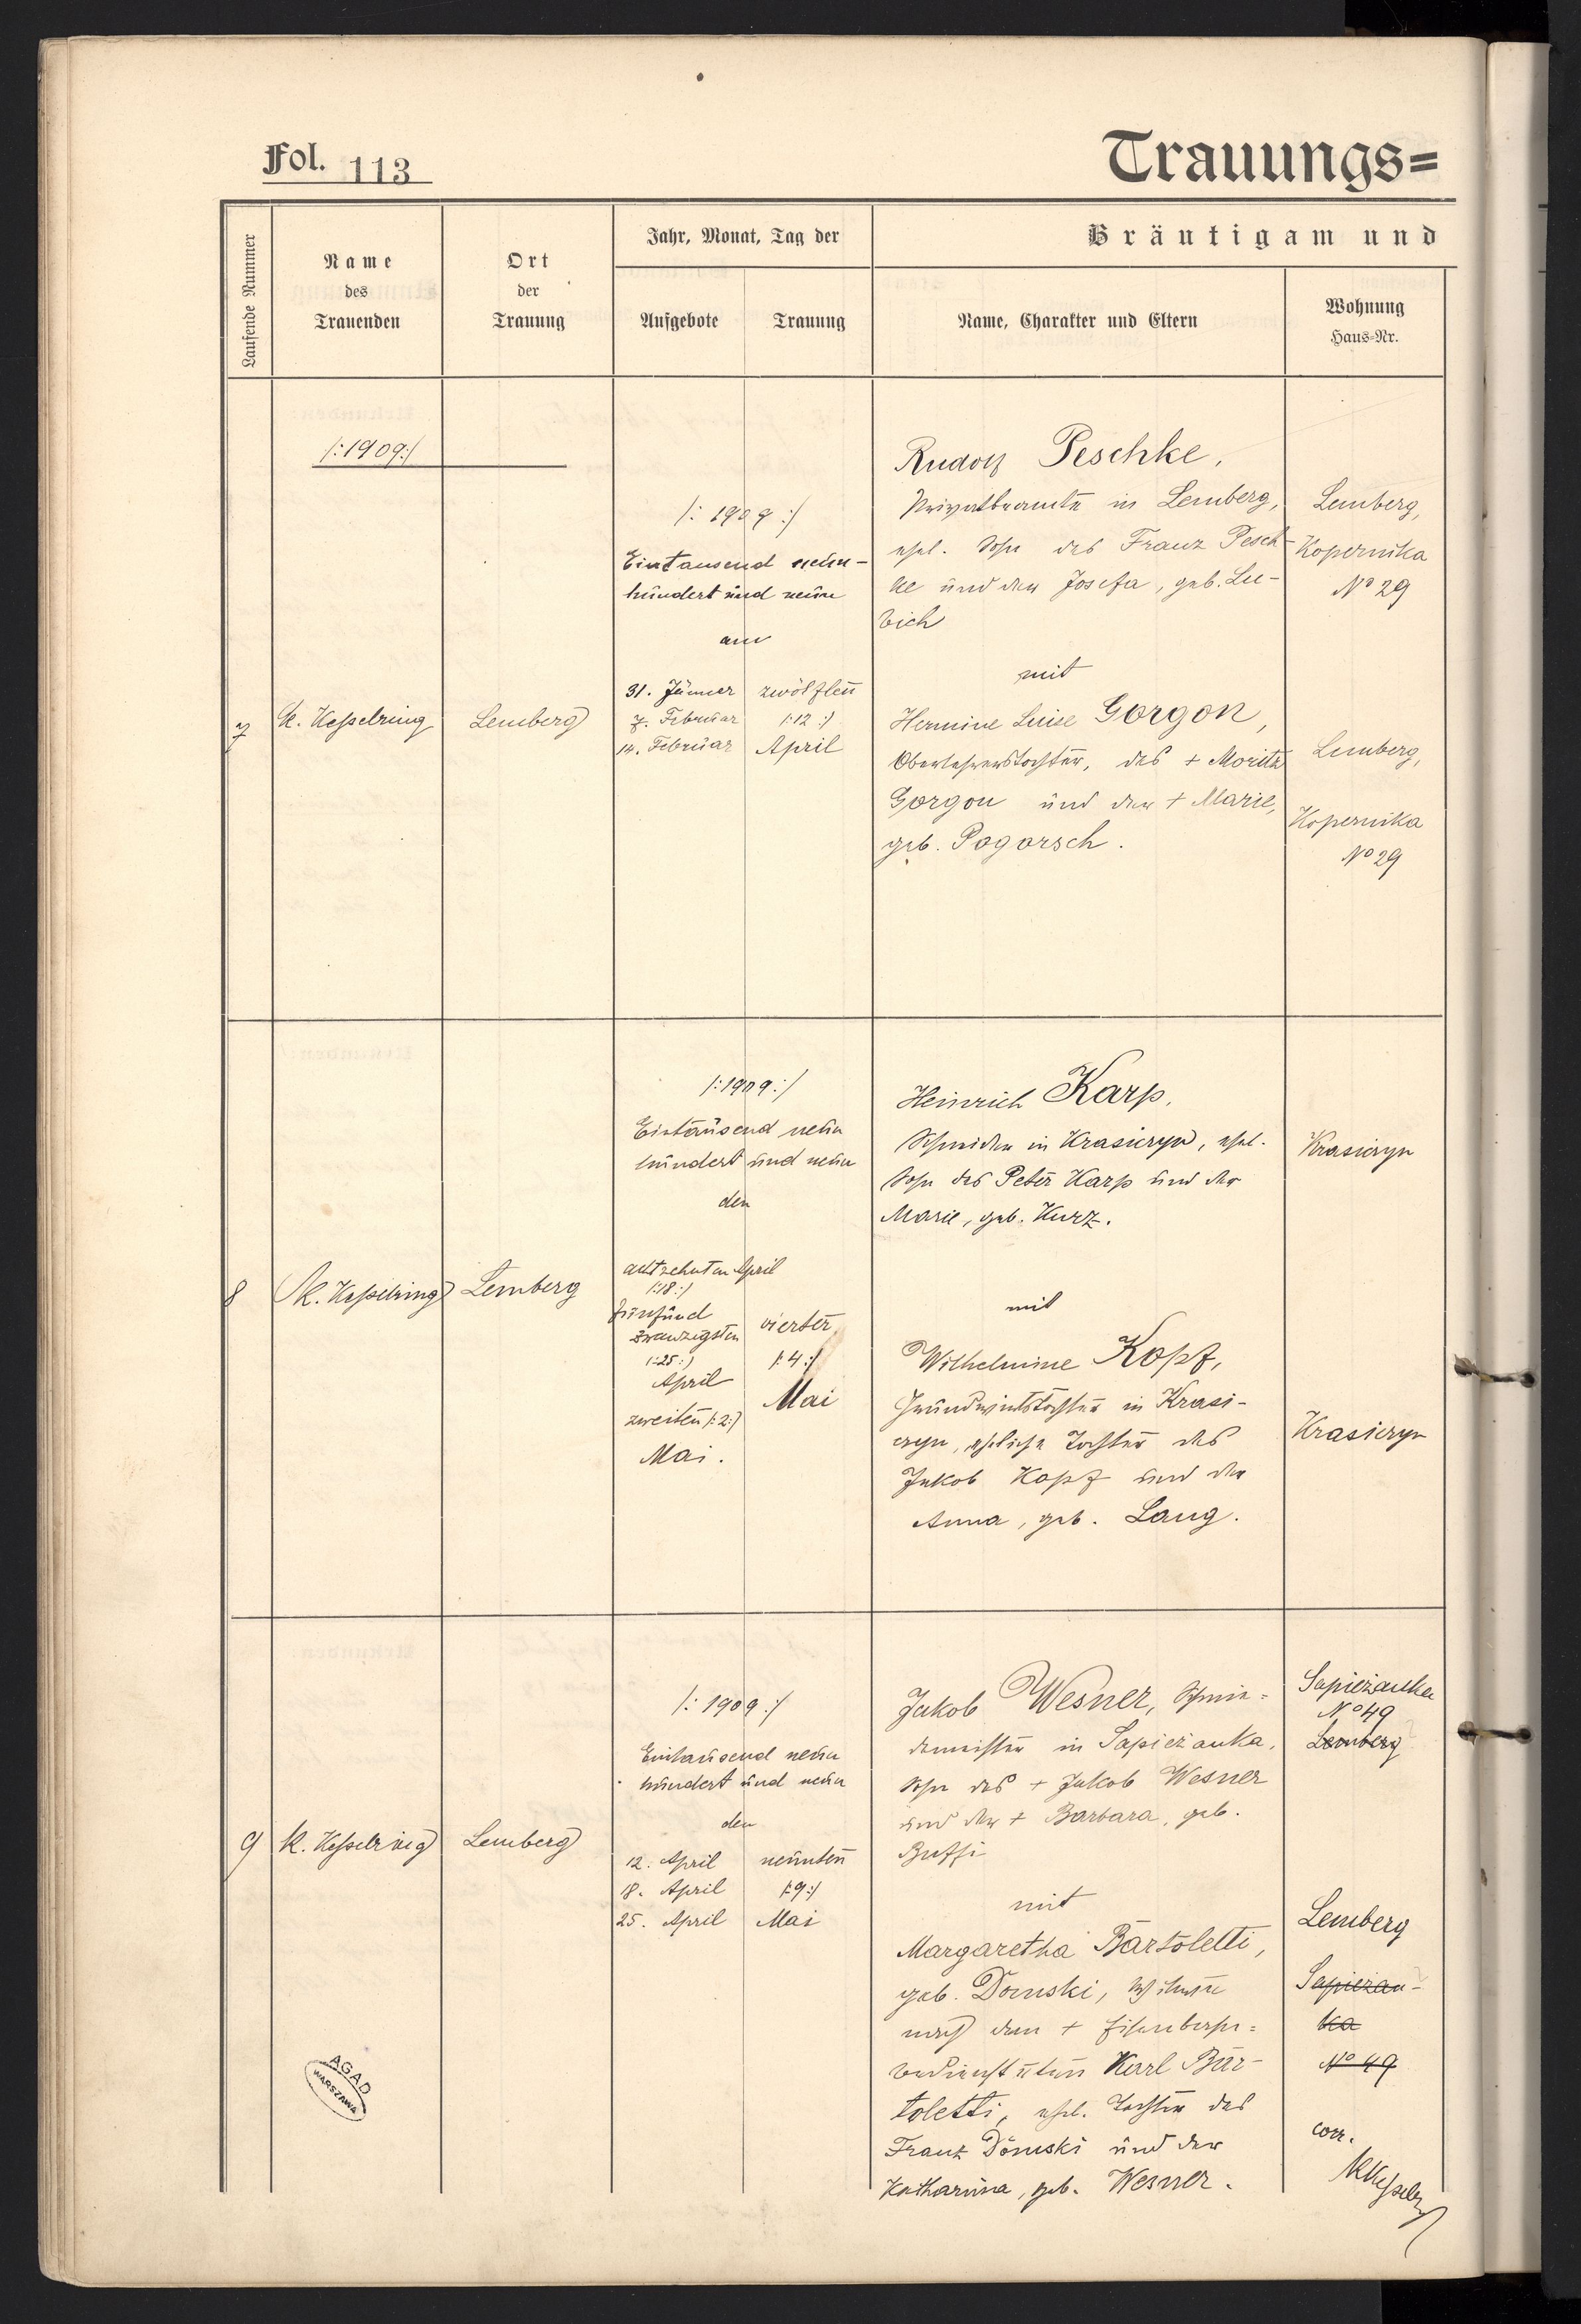 Fol. 113
Trauungs=
Laufende Nummer
Name
des
Trauenden
Ort
der
Trauung
Jahr, Monat, Tag der
Aufgebote
Trauung
Bräutigam und
Name, Charakter und Eltern
Wohnung
Haus-Nr.
/:1909:/
7
K. Kesselring
Lemberg
/: 1909 :/
Eintausend neun-
hundert und neun
am
31. Jänner
7. Februar
14. Februar
zwölften
/:12:/
April
Rudolf Peschke,
Privatbeamter in Lemberg,
ehel. Sohn des Franz Pesch-
ke und der Josefa, geb. Lu-
bich
mit
Hermine Luise Gorgon,
Oberlehrerstochter, des + Moritz
Gorgon und der + Marie,
geb. Pogorsch.
Lemberg,
Kopernika
No 29
Lemberg,
Kopernika
No 29
8
K. Kesselring
Lemberg
/:1909:/
Eintausend neun
hundert und neun
den
achtzehnten April
/:18:/
fünfund
zwanzigsten
/:25:/
April
zweiten /:2:/
Mai.
vierter
/:4:/
Mai
Heinrich Karp,
Schneider in Krasiczyn, ehel.
Sohn des Peter Karp und der
Marie, geb. Kurz.
mit
Wilhelmine Kopf,
Grundwirtstochter in Krasi-
czyn, eheliche Tochter des
Jakob Kopf und der
Anna, geb. Lang.
Krasiczyn
Krasiczyn
9
K. Kesselring
Lemberg
/: 1909 :/
Eintausend neun
hundert und neun
den
12. April
18. April
25. April
neunten
/:9:/
Mai
Jakob Wesner, Schmie=
demeister in Sapieżanka,
Sohn des + Jakob Wesner
und der + Barbara, geb.
Buffi
mit
Margaretha Bartoletti,
geb. Dornski, Witwe
nach dem + Eisenbahn=
bediensteten Karl Bar-
toletti, ehel. Tochter des
Franz Dornski und der
Katharina, geb. Wesner.
Sapieżanka
No 49
Lemberg
Lemberg
Sapieżan-
ka
No 49
corr.
KKesselring
AGAD
WARSZAWA